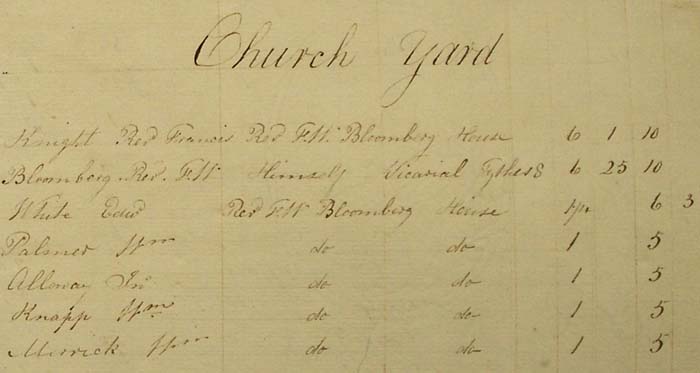 Church Yard
Knight Revd Francis Revd F.W. Bloomberg House 6 1 10
Bloomberg Rev. F.W Himself Vicarial Tythes 6 25 10
White Edwd Revd F.W Bloomberg House 6 3
Palmer Wm do do 1 5
Alloway Jno do do 1 5
Knapp Wm do do 1 5
Merrick Wm do do 1 5